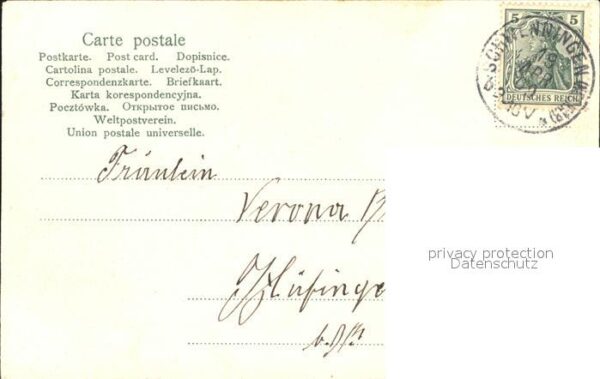 Carte postale
Postkarte. Post card. Dopisnice.
Cartolina postale. Levelező-Lap.
Correspondenzkarte. Briefkaart.
Karta korespondencyjna.
Pocztówka. Открытое письмо.
Weltpostverein.
Union postale universelle.
5 5
DEUTSCHES REICH
SCHWENNINGEN
Fräulein
Verona
privacy protection
Datenschutz
Hüfinge